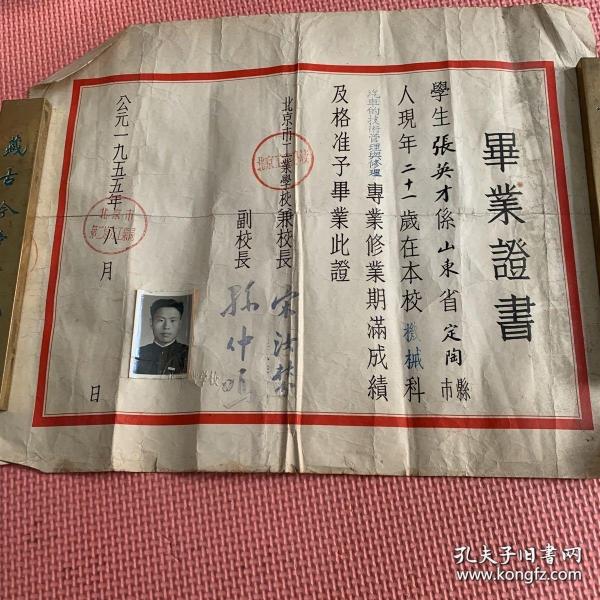 畢業證書
學生張英才係山東省定陶縣市
人現年二十一歲在本校機械科
汽車的技術管理與修理專業修業期滿成績
及格准予畢業此證
北京市工業學校兼校長
副校長
孫仲鳴
公元一九五五年八月 日
北京市
學校
藏古今
孔夫子旧书网
www.kongfz.com